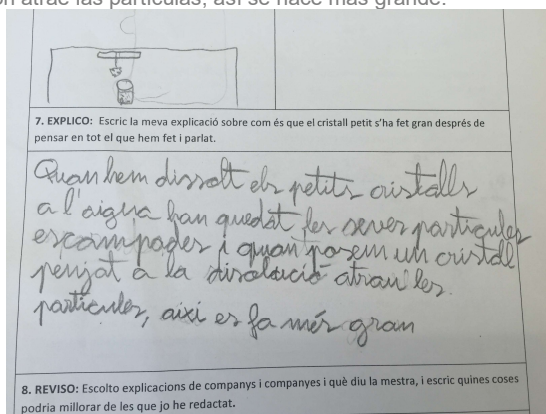 ón atrae las partículas, así se hace más grande.
7. EXPLICO: Escric la meva explicació sobre com és que el cristall petit s'ha fet gran després de
pensar en tot el que hem fet i parlat.
Quan hem dissolt els petits cristalls
a l'aigua han quedat les seves particules
escampades i quan posem un cristall
penjat a la disolució atrau les
particules, aixi es fa més gran
8. REVISO: Escolto explicacions de companys i companyes i què diu la mestra, i escric quines coses
podria millorar de les que jo he redactat.